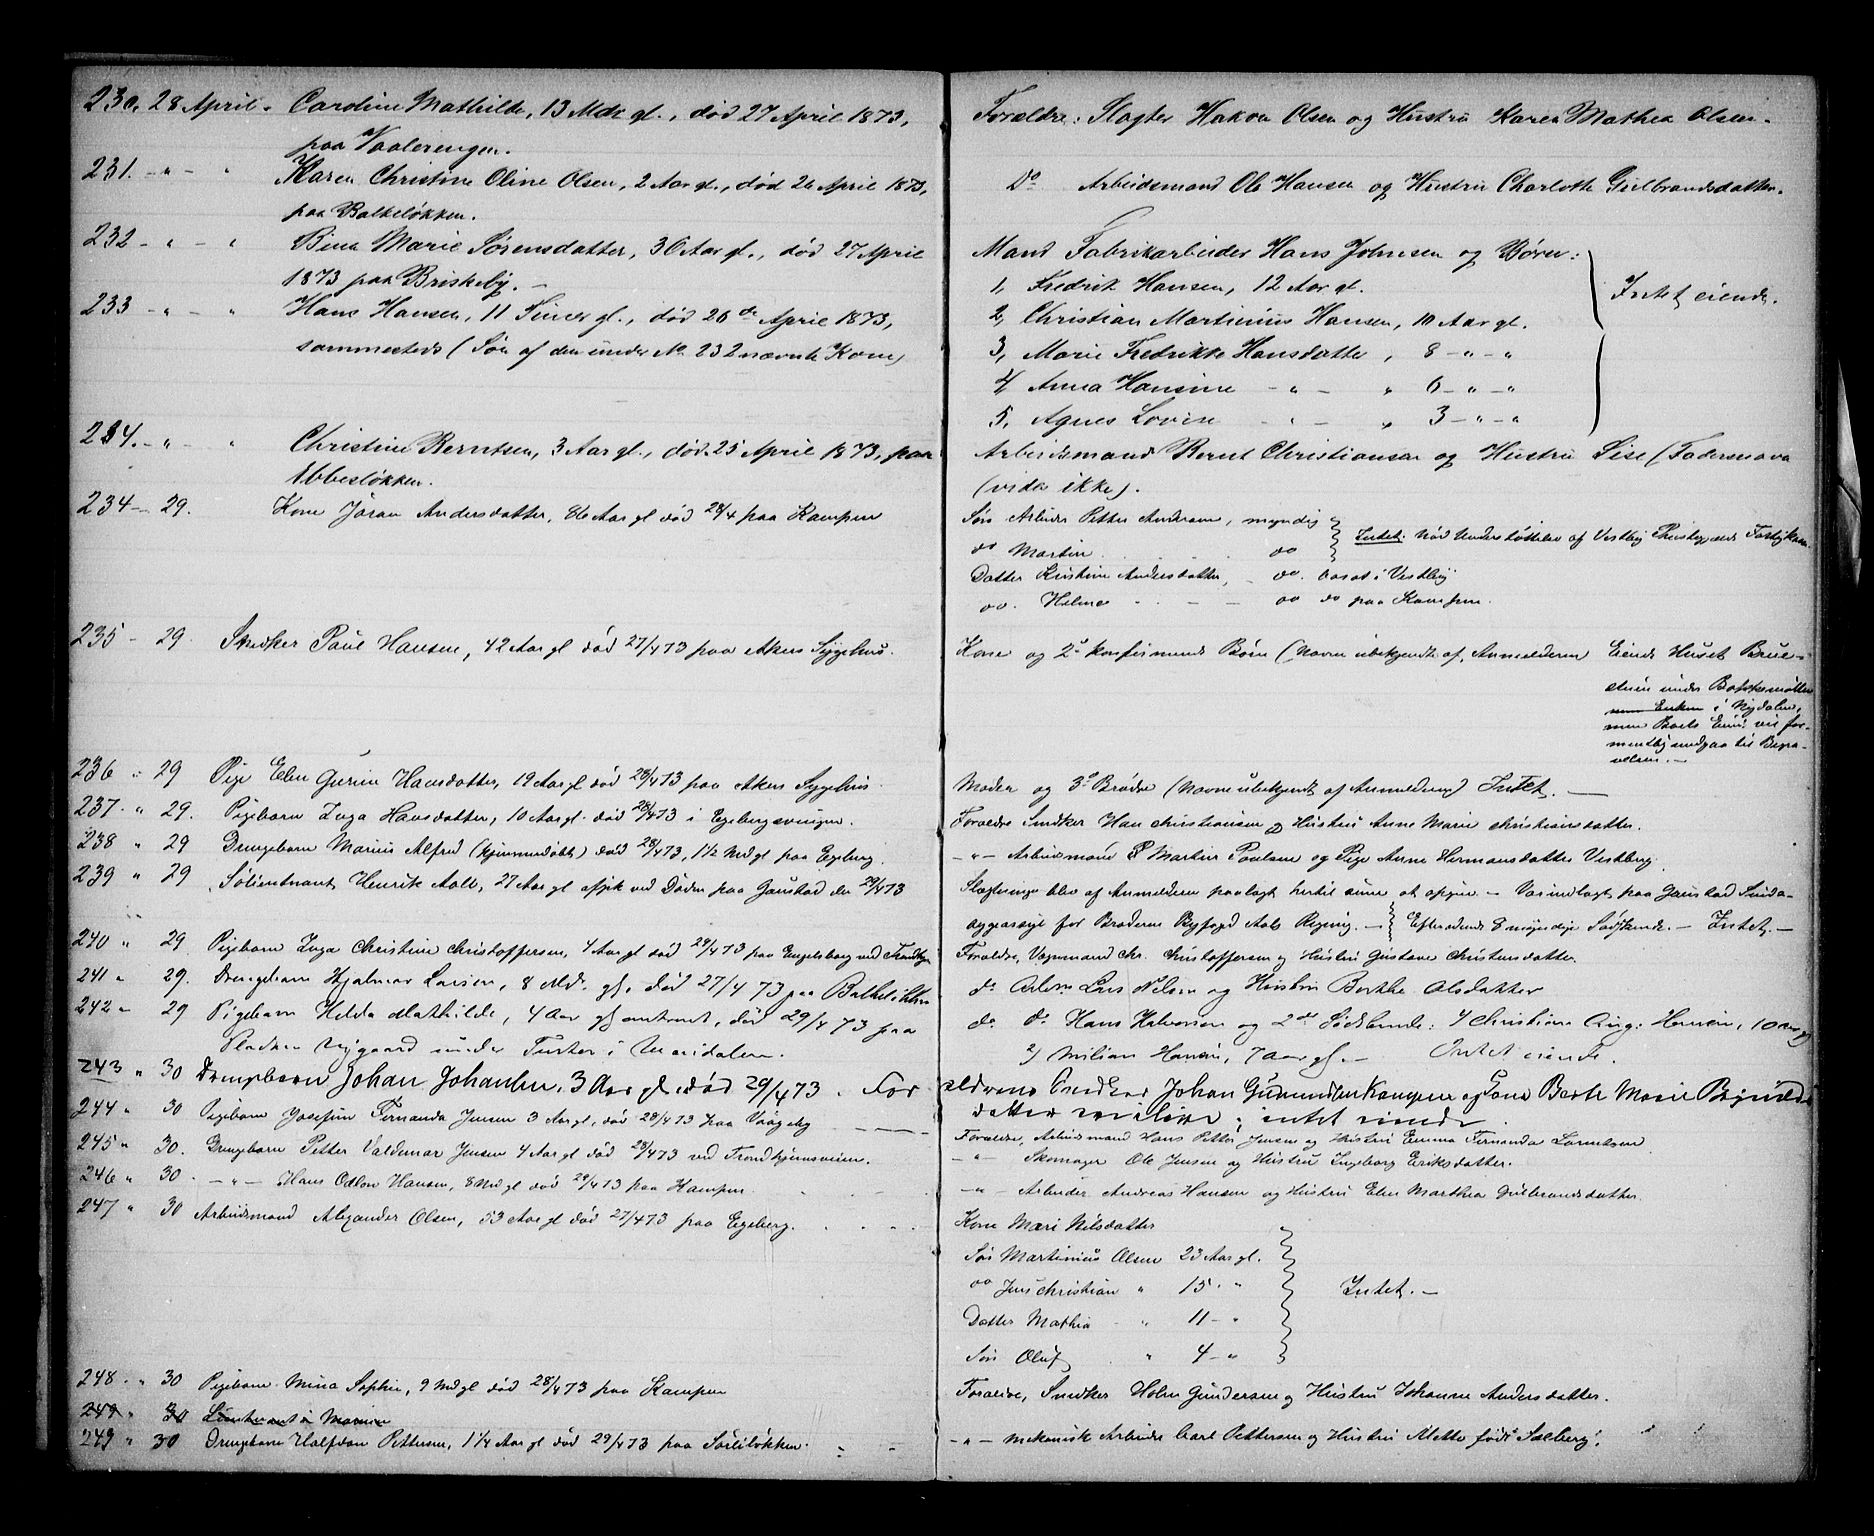 230. 28 April. Caroline Mathilde, 13 Mdr gl., død 27 April 1873,
paa Vaalerengen.
Forældre: Slagter Hakon Olsen og Hustru Karen Mathea Olsen.
231. - " - " Karen Christine Oline Olsen, 2 Aar gl., død 26 April 1873,
paa Balkeløkken.
Do Arbeidsmand Ole Hansen og Hustru Charlotte Gulbrandsdatter.
232 - " - " Bina Marie Sørensdatter, 36 Aar gl., død 27 April
1873 paa Briskeby. -
Mand Fabrikarbeider Hans Johnsen og Børn:
1, Fredrik Hansen, 12 Aar gl.
Intet eiende.
233 - " - " Hans Hansen, 11 Timer gl., død 26de April 1873,
sammesteds (Søn af den under No 232 nævnte Kone)
2, Christian Martinius Hansen, 10 Aar gl.
3, Marie Fredrikke Hansdatter, 8 - " - "
4, Anna Hansine - " - " 6 - " - "
5, Agnes Lovise - " - " 3 - " - "
234. - " - " Christine Berntsen, 3 Aar gl., død 25 April 1873, paa
Abbesløkken.
Arbeidsmand Bernt Christiansen og Hustru Lise (Faderens Navn
vides ikke).
234 - 29. Kone Jøran Andersdatter, 86 Aar gl død 28/4 paa Kampen
Søn Arbeider Petter Andersen, myndig
do Martin do
Intet. Nød Understøttelse af Vestby Præstegjelds Fattigkasse.
Datter Kristine Andersdatter, do. bosat i Vestby
do. Helene - - - do do paa Kampen.
235 - 29. Snedker Paul Hansen, 42 Aar gl død 27/4 73 paa Akers Sygehus.
Kone og 2de konfirmerede Børn (Navne ubekjendt af Anmelderen
Eiende Huset Brue-
stuen under Bakkemøllen
i Nydalen,
men Boets Eiend. vil for-
mentlig medgaa til Begra-
velsen. -
236 " 29 Pige Elen Gurine Hansdatter, 19 Aar gl død 28/4 73 paa Akers Sygehus
Moder og 3de Brødre (Navne ubekjendt af Anmelderen) Intet. -
237. " 29. Pigebarn Inga Hansdatter, 10 Aar gl. død 28/4 73 i Egebergsvingen.
Forældre Snedker Hans Christiansen og Hustru Anne Marie Christiansdatter.
238 " 29 Drengebarn Marius Alfred (hjemmedøbt) død 28/4 73, 1½ Md gl paa Egeberg.
- " - Arbeidsmand P Martin Poulsen og Pige Anne Hermansdatter Vestberg
239 " 29 Søløitnant Henrik Aall, 27 Aar gl afgik ved Døden paa Gaustad den 29/4 73
Slægtninge blev af Anmelderen paalagt hertil senere at opgive - Var indlagt paa Gaustad Sinds-
sygeasyl for Broderen Byfoged Aals Regning. - Efterladende 8 myndige Sødskende. - Intet. -
240 " 29. Pigebarn Inga Christine Christoffersen, 4 Aar gl død 29/4 73 paa Engelsborg ved Trondhj
Forældre, Vognmand Chr. Christoffersen og Hustru Gustava Christensdatter.
241 " 29. Drengebarn Hjalmar Larsen, 8 Mdr. gl, død 27/4 73 paa Balkeløkken
do Arbm. Lars Nilsen og Hustru Berthe Olsdatter
242 " 29 Pigebarn Hilda Mathilde, 4 Aar gl omtrent, død 29/4 73 paa
Pladsen Nygaard under Turter i Maridalen.
do. do. Hans Halvorsen og 2de Sødskende: 1) Christian Aug: Hansen, 10 aar gl
2) Milian Hansen, 7 aar gl. - Intet eiende.
243 " 30 Drengebarn Johan Johansen, 3 Aar gl, død 29/4 73. For
ældrene Snedker Johan Gudmundsen Kampen og Kone Berte Marie Bjørulds
datter ; intet eiende.
244 " 30 Pigebarn Josefine Fernanda Jensen 3 Aar gl, død 28/4 73 paa
Forældre, Arbeidsmand Hans Petter Jensen og Hustru Emma Fernanda
245 " 30. Drengebarn Petter Valdemar Jensen 4 Aar gl død 28/4 73 ved Trondhjemsveien.
- " - Skomager Ole Jensen og Hustru Ingeborg Eriksdatter.
246 " 30 - " - Hans Odlov Hansen, 8 Md gl død 29/4 73 paa Kampen
- " - Arbeider Andreas Hansen og Hustru Elen Marthea Gulbrandsdatter
247 " 30 Arbeidsmand Alexander Olsen, 53 Aar gl død 27/4 73 paa Egeberg.
Kone Mari Nilsdatter
Søn Martinius Olsen 23 Aar gl.
do Jens Christian " 15 - "
Datter Mathea " 11 - "
Søn Oluf " 4 - "
Intet. -
248. " 30 Pigebarn Mina Sophie, 9 Md gl død 28/4 73 paa Kampen
Forældre, Snedker Holm Gundersen og Hustru Johanne Andersdatter.
249 " 30
249 " 30 Drengebarn Halfdan Pettersen, 1¼ Aar gl død 29/4 73 paa Sorliløkken.
- " - mekanisk Arbeider Carl Pettersen og Hustru Alette født Solberg.